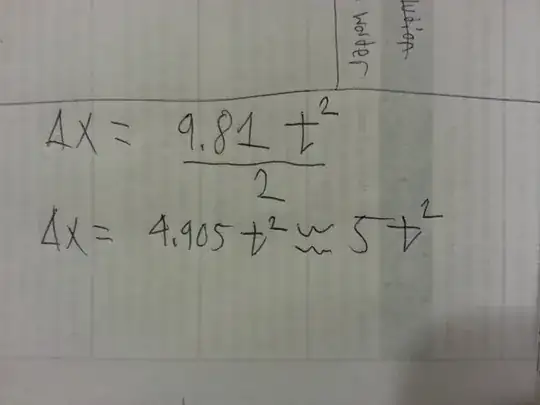 Δx = 9.81 t² / 2
Δx = 4.905 t² ≈ 5 t²